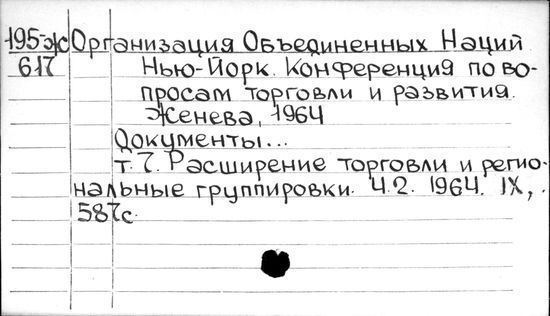 195-ж Организация Объединенных Наций
617 Нью-Йорк. Конференция по во-
просам торговли и развития.
Женева, 1964
Документы...
т. 7. Расширение торговли и регио-
нальные группировки. Ч.2. 1964. IX,
587с.